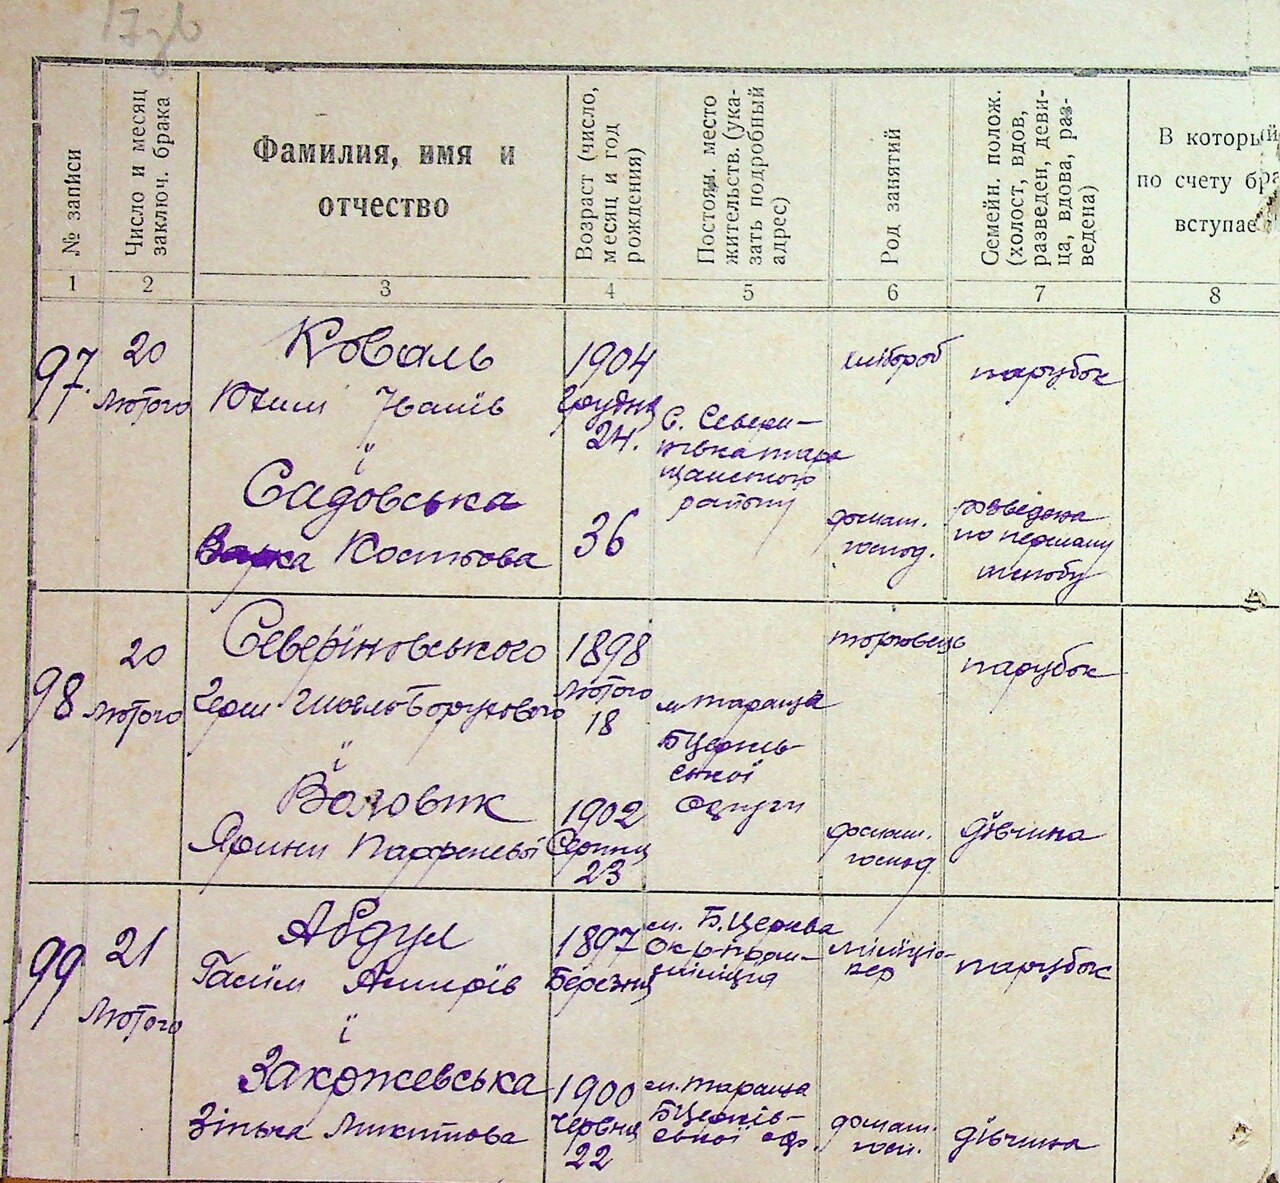 № записи
Число и месяц
заключ. брака
Фамилия, имя и
отчество
Возраст (число,
месяц и год
рождения)
Постоян. место
жительств. (ука-
зать подробный
адрес)
Род занятий
Семейн. полож.
(холост, вдов,
разведен, деви-
ца, вдова, раз-
ведена)
В который
по счету бра
вступае
1 2 3 4 5 6 7 8
97.
20
Лютого
Коваль
Юхим Іванів
і
Садовська
Варка Костьова
1904
Грудня
24.
36
С. Севери-
нівка тара
щанського
району
хлібороб
домаш.
господ.
парубок
розведена
по першому
шлюбу
98
20
Лютого
Северіновського
Герш Борухового
і
Воловик
Ярини Парфеневої
1898
Лютого
18
1902
Серпня
23
м Тараща
БЦерків-
ської
округи
торговець
домаш.
господ
парубок
дівчина
99
21
Лютого
Абдул
Гасім Амирів
і
Закржевська
Зінька Микитова
1897
Березня
1900
Червня
22
м. Б.Церква
міліція
м. Тараща
БЦерків-
ської окр.
міліціо-
нер
домаш.
госп.
парубок
дівчина